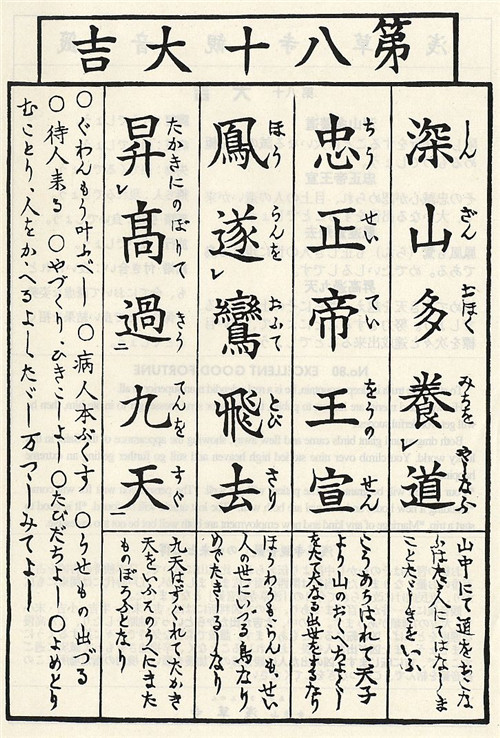 第八十大吉
深山多養道
しん ざん おほく みちを やなふ
忠正帝王宣
ちう せい てい をうの せん
鳳遂鸞飛去
ほう らんを おふて とび さり
昇髙過九天
たかきにのぼりて きう てんを すぐ
山中にて道をおこな
ふはたゞ人にてはなくま
ことたゞしきをいふ
こゝろあらはれて天子
より山のおくへちよくし
をたて大なる出世をするなり
ほうわうもらんも、せい
人の世にいづる鳥なり
めでたきるしなり
九天はすぐれてたかき
天をいふそのうへにまた
ものぼらふとなり
〇ぐわんもう叶ふべし 〇病人本ぶくす 〇うせもの出づる
〇待人来る 〇やづくり、ひきこしよし 〇たびだちよし 〇よめとり
むことり、人をかゝへるよし、たゞし万つゝしみてよし